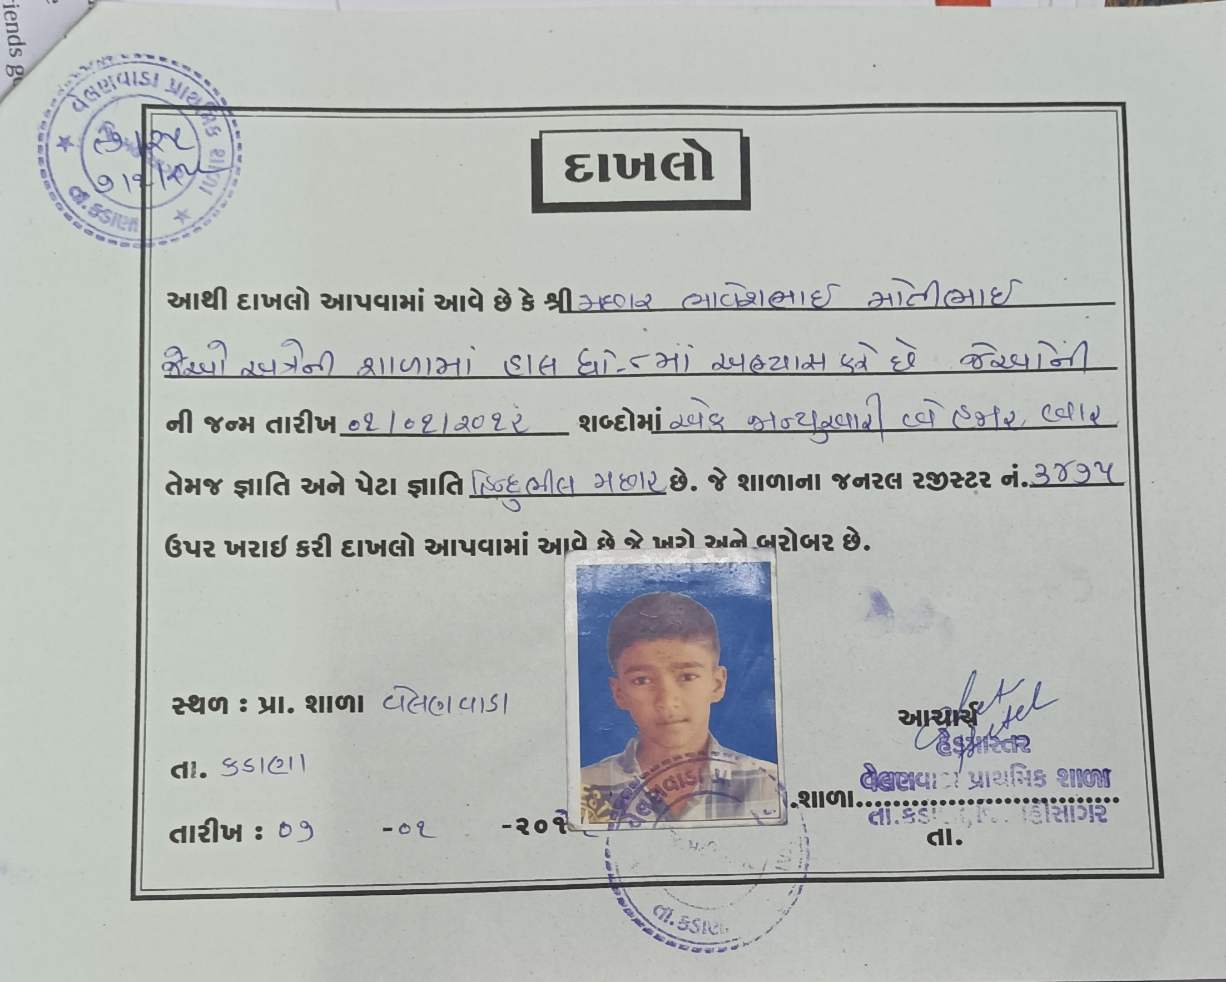 iends g
વેલણવાડા પ્રાથમિક શાળા
તા.કડાણા
દાખલો
આથી દાખલો આપવામાં આવે છે કે શ્રી મછાર ભાવેશભાઈ મોતીભાઈ
જેઓ અત્રેની શાળામાં હાલ ધો-૮માં અભ્યાસ કરે છે જેઓની
ની જન્મ તારીખ ૦૧/૦૧/૨૦૧૨ શબ્દોમાં એક જાન્યુઆરી બે હજાર બાર
તેમજ જ્ઞાતિ અને પેટા જ્ઞાતિ હિન્દુ ભીલ મછાર છે. જે શાળાના જનરલ રજીસ્ટર નં. ૩૪૭૫
ઉપર ખરાઇ કરી દાખલો આપવામાં આવે છે જે ખરો અને બરોબર છે.
સ્થળ : પ્રા. શાળા વેલણવાડા
આચાર્ય
હેડમાસ્તર
તા. કડાણા
વેલણવાડા પ્રાથમિક શાળા
.શાળા
તા.કડાણા, જિ. મહીસાગર
તારીખ : ૦૭ -૦૧ -૨૦૧
તા.
વેલણવાડા પ્રા
તા.કડાણા